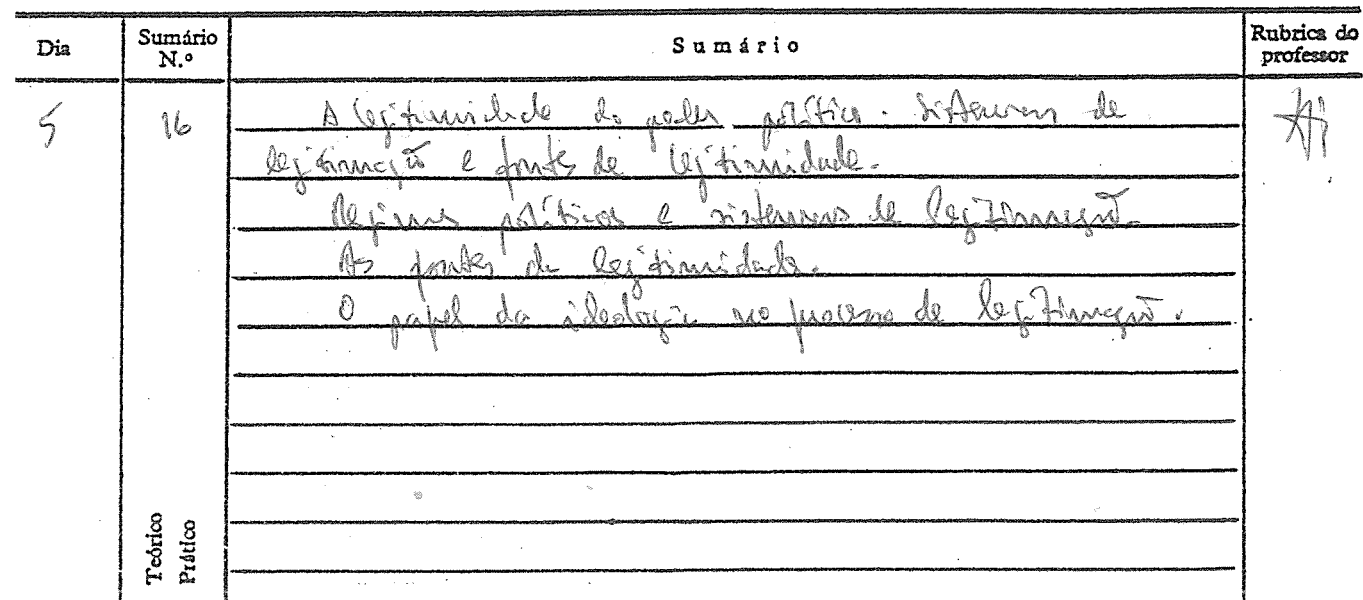 Dia Sumário N.º Sumário Rubrica do professor
5 16 A legitimidade do poder político. Sistemas de
legitimação e fontes de legitimidade.
Regimes políticos e sistemas de legitimação.
As fontes da legitimidade.
O papel da ideologia no processo de legitimação.
Teórico
Prático